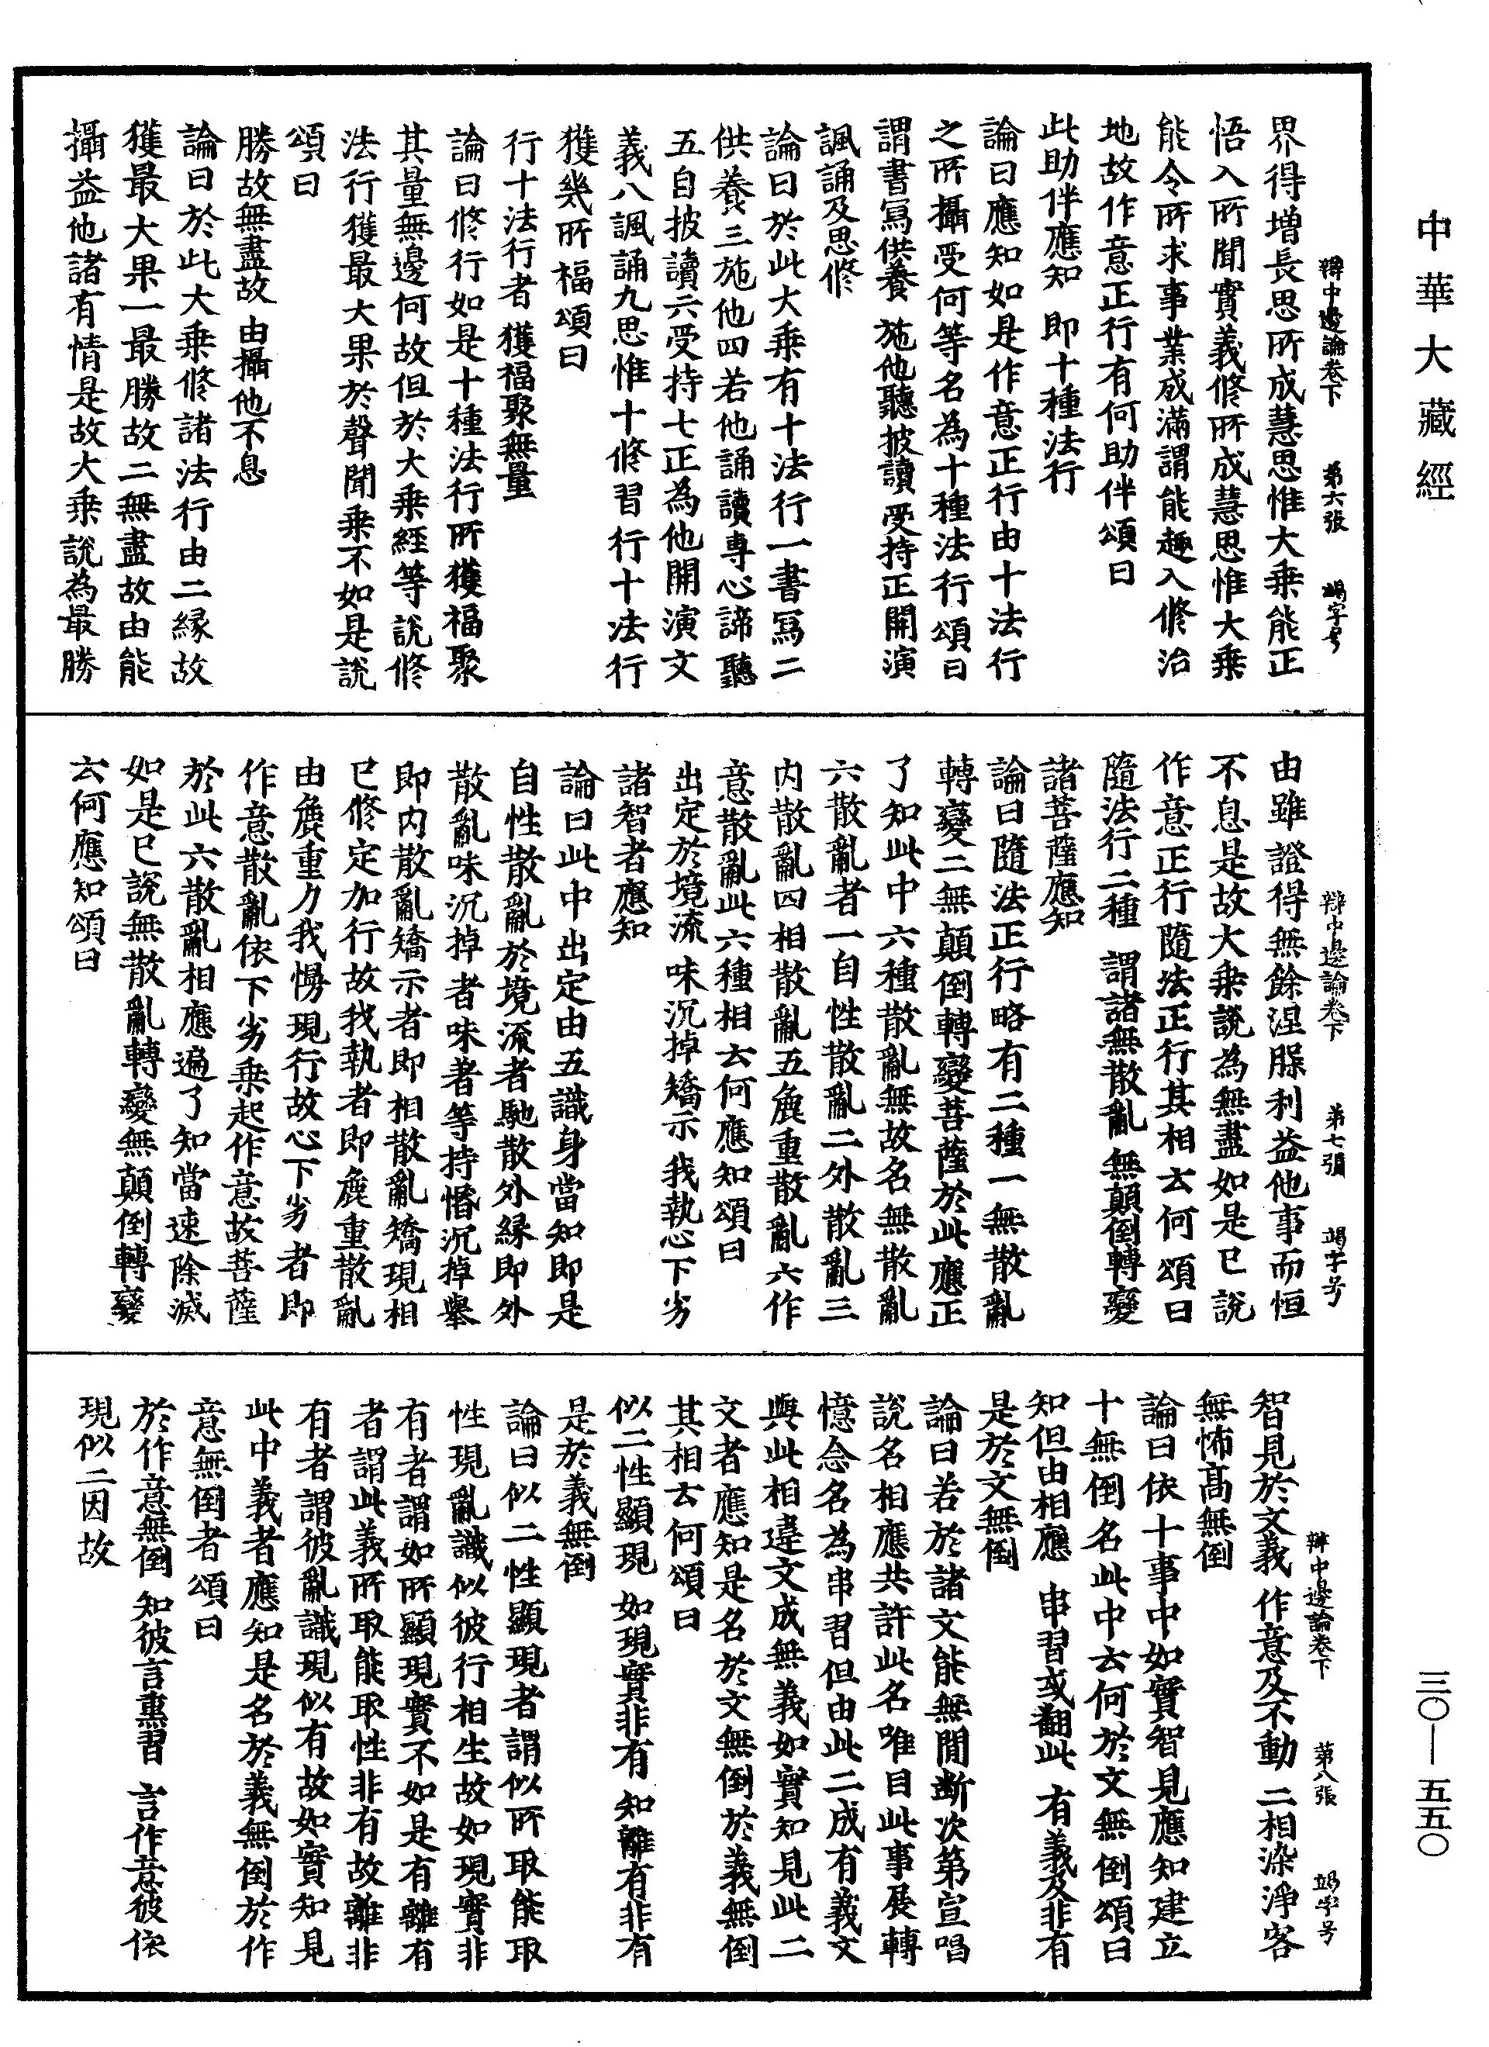 中華大藏經
三〇—五五〇
辯中邊論卷下　第六張　竭字号
界得增長思所成慧思惟大乘能正
悟入所聞實義修所成慧思惟大乘
能令所求事業成滿謂能趣入修治
地故作意正行有何助伴頌曰
此助伴應知　即十種法行
論曰應知如是作意正行由十法行
之所攝受何等名為十種法行頌曰
謂書寫供養　施他聽披讀　受持正開演
諷誦及思修
論曰於此大乘有十法行一書寫二
供養三施他四若他誦讀專心諦聽
五自披讀六受持七正為他開演文
義八諷誦九思惟十修習行十法行
獲幾所福頌曰
行十法行者　獲福聚無量
論曰修行如是十種法行所獲福聚
其量無邊何故但於大乘經等說修
法行獲最大果於聲聞乘不如是說
頌曰
勝故無盡故　由攝他不息
論曰於此大乘修諸法行由二緣故
獲最大果一最勝故二無盡故由能
攝益他諸有情是故大乘說為最勝
辯中邊論卷下　第七張　竭字号
由雖證得無餘涅槃利益他事而恒
不息是故大乘說為無盡如是已說
作意正行隨法正行其相云何頌曰
隨法行二種　謂諸無散亂　無顛倒轉變
諸菩薩應知
論曰隨法正行略有二種一無散亂
轉變二無顛倒轉變菩薩於此應正
了知此中六種散亂無故名無散亂
六散亂者一自性散亂二外散亂三
內散亂四相散亂五麁重散亂六作
意散亂此六種相云何應知頌曰
出定於境流　味沉掉矯示　我執心下劣
諸智者應知
論曰此中出定由五識身當知即是
自性散亂於境流者馳散外緣即外
散亂味沉掉者味著等持惛沉掉舉
即內散亂矯示者即相散亂矯現相
已修定加行故我執者即麁重散亂
由麁重力我慢現行故心下劣者即
作意散亂依下劣乘起作意故菩薩
於此六散亂相應遍了知當速除滅
如是已說無散亂轉變無顛倒轉變
云何應知頌曰
辯中邊論卷下　第八張　竭字号
智見於文義　作意及不動　二相染淨客
無怖高無倒
論曰依十事中如實智見應知建立
十無倒名此中云何於文無倒頌曰
知但由相應　串習或翻此　有義及非有
是於文無倒
論曰若於諸文能無間斷次第宣唱
說名相應共許此名唯目此事展轉
憶念名為串習但由此二成有義文
與此相違文成無義如實知見此二
文者應知是名於文無倒於義無倒
其相云何頌曰
似二性顯現　如現實非有　知離有非有
是於義無倒
論曰似二性顯現者謂似所取能取
性現亂識似彼行相生故如現實非
有者謂如所顯現實不如是有離有
者謂此義所取能取性非有故離非
有者謂彼亂識現似有故如實知見
此中義者應知是名於義無倒於作
意無倒者頌曰
於作意無倒　知彼言熏習　言作意彼依
現似二因故